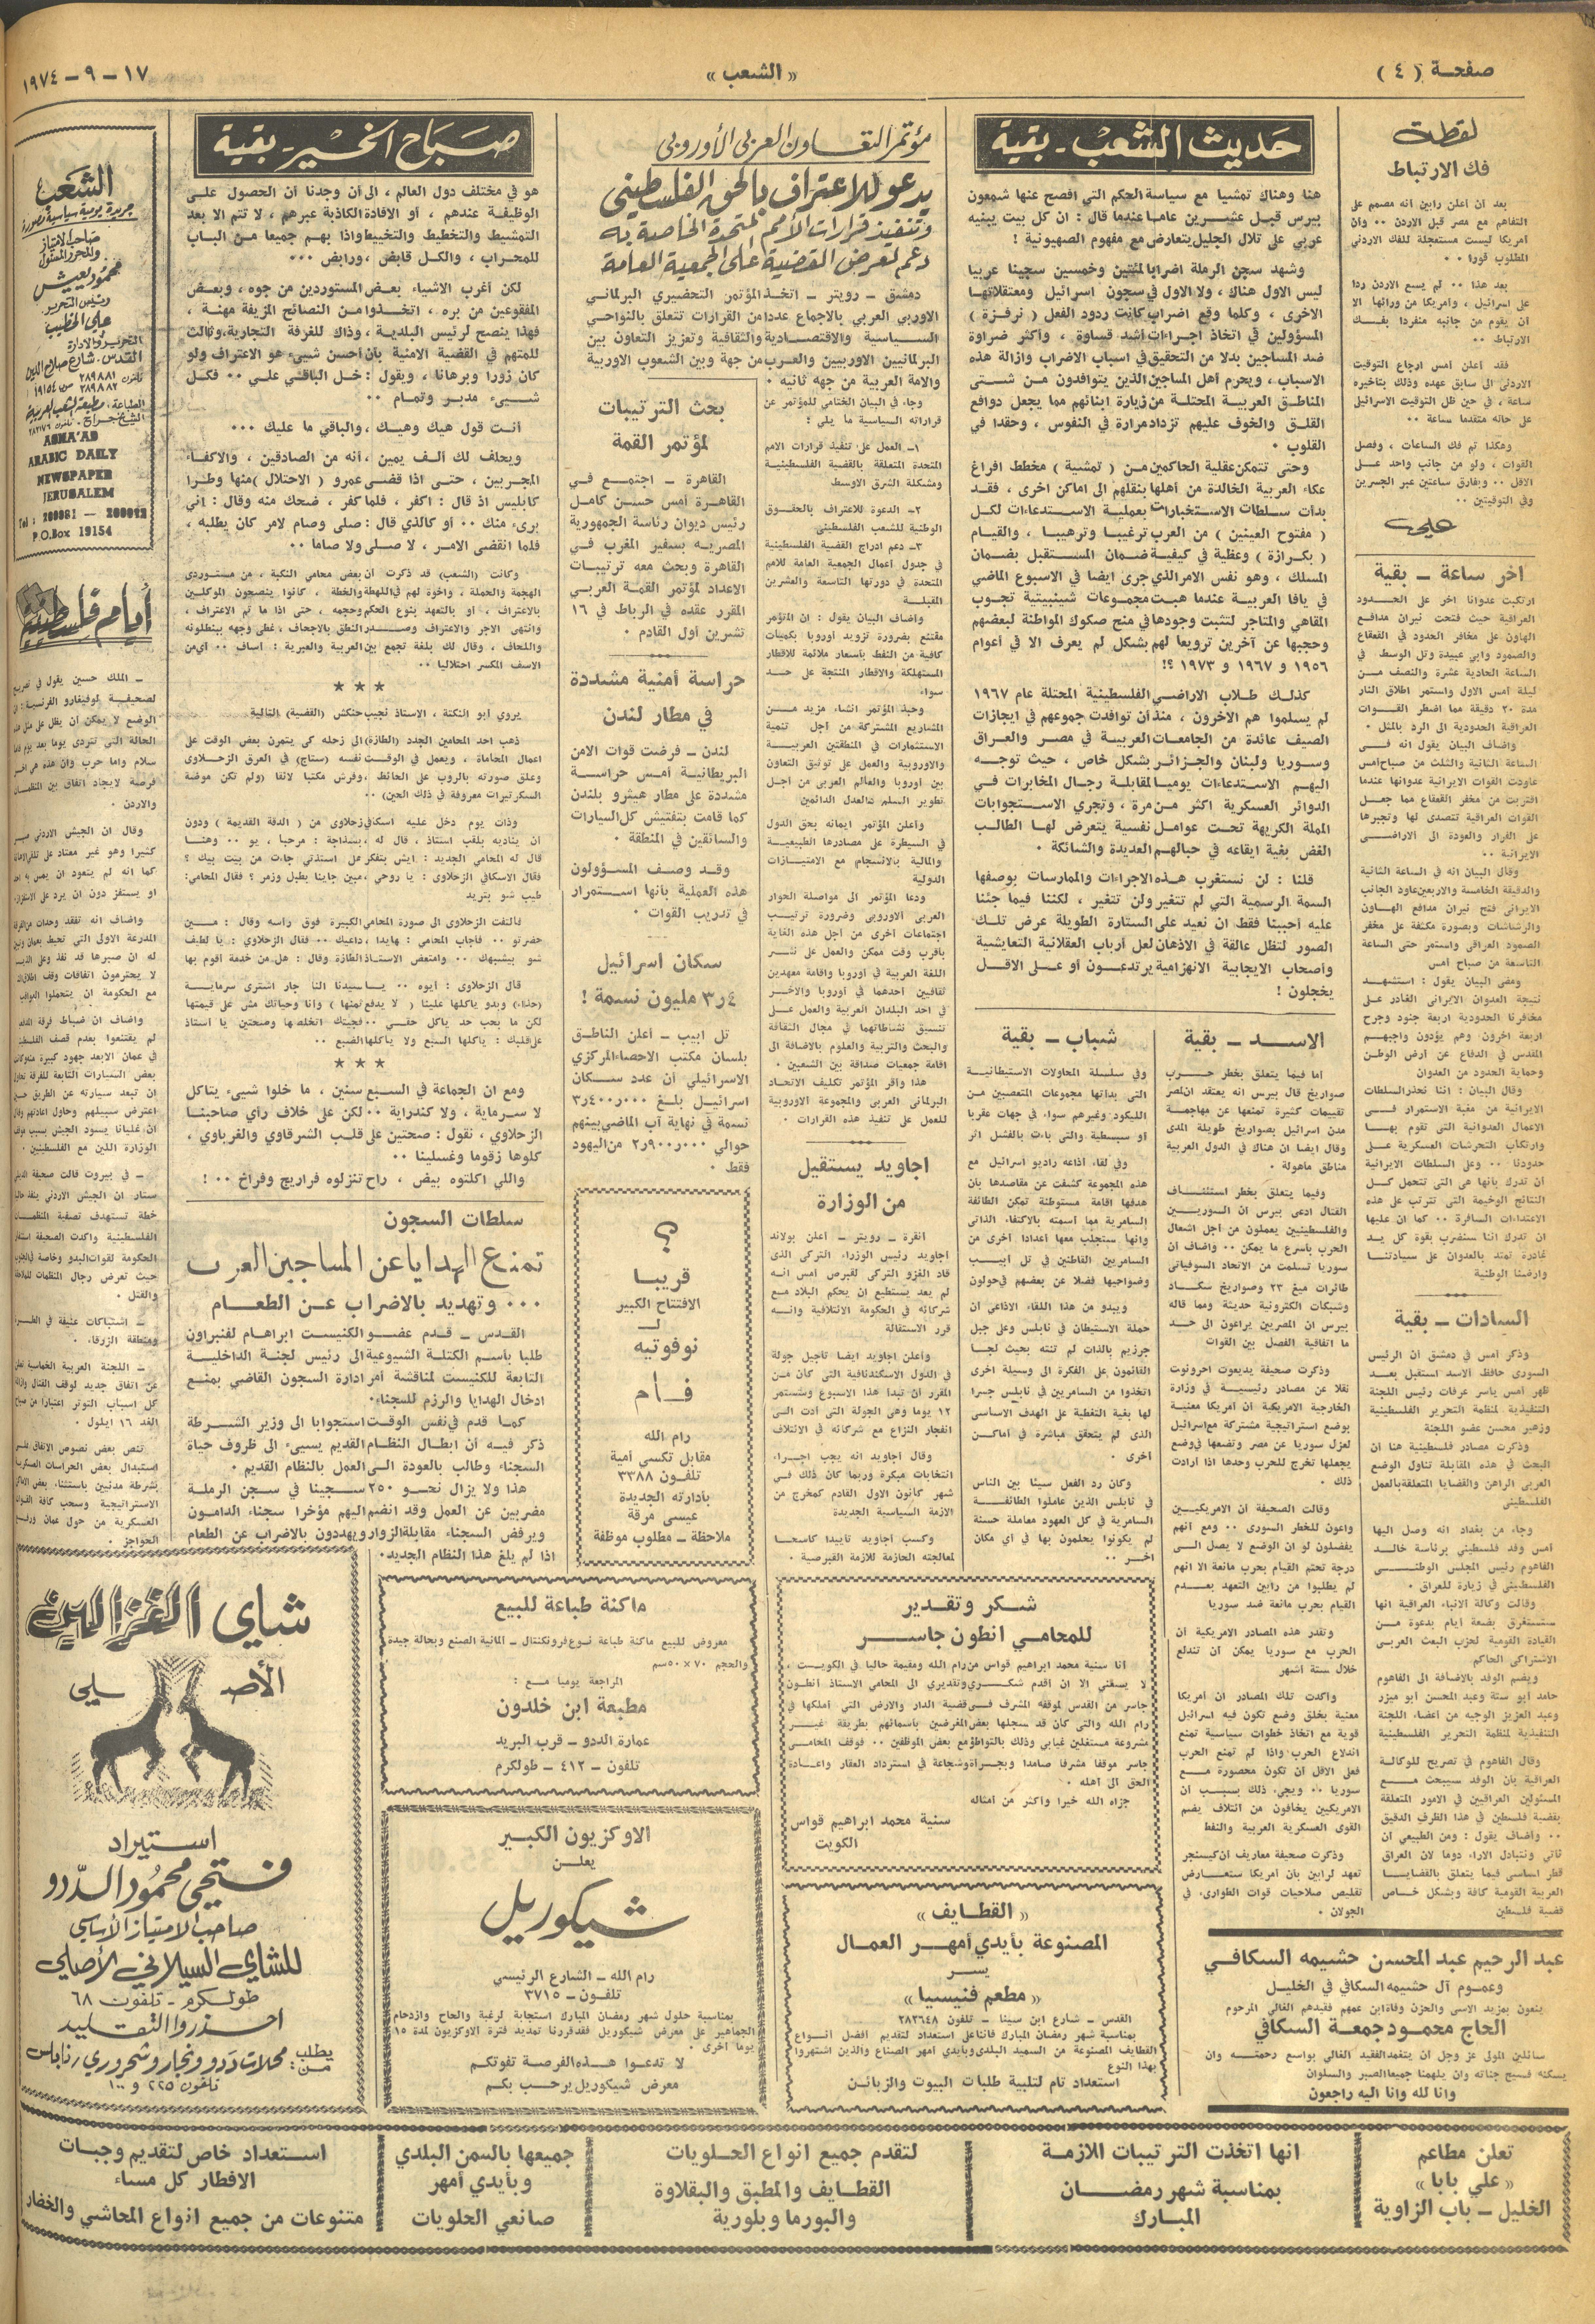 صفحة (٤)
«الشعب»
١٧ - ٩ - ١٩٧٤
لقطة
فك الارتباط
بعد ان اعلن رابين انه مصمم على
التفاهم مع مصر قبل الاردن ٠٠ وأن
أمريكا ليست مستعجلة للفك الاردني
المطلوب فورا ٠٠
بعد هذا ٠٠ لم يسع الاردن ردا
على اسرائيل ، وامريكا من ورائها الا
أن يقوم من جانبه منفردا بفك
الارتباط ٠٠
فقد أعلن امس ارجاع التوقيت
الاردني الى سابق عهده وذلك بتأخيره
ساعة ، في حين ظل التوقيت الاسرائيلي
على حاله متقدما ساعة ٠٠
وهكذا تم فك الساعات ، وفصل
القوات ، ولو من جانب واحد على
الاقل ٠٠ وبفارق ساعتين عبر الجسرين
وفي التوقيتين ٠٠
علي
اخر ساعة - بقية
ارتكبت عدوانا اخر على الحدود
العراقية حيث فتحت نيران مدافع
الهاون على مخافر الحدود في القعقاع
والصمود وابي عبيدة وتل الوسط في
الساعة الحادية عشرة والنصف من
ليلة امس الاول واستمر اطلاق النار
مدة ٢٠ دقيقة مما اضطر القوات
العراقية الحدودية الى الرد بالمثل ٠
واضاف البيان يقول انه في
الساعة الثانية والثلث من صباح امس
عاودت القوات الايرانية عدوانها عندما
اقتربت من مخفر القعقاع مما جعل
القوات العراقية تتصدى لها وتجبرها
على الفرار والعودة الى الاراضي
الايرانية ٠٠
وقال البيان انه في الساعة الثانية
والدقيقة الخامسة والاربعين عاود الجانب
الايراني فتح نيران مدافع الهاون
والرشاشات وبصورة مكثفة على مخفر
الصمود العراقي واستمر حتى الساعة
التاسعة من صباح امس
ومضى البيان يقول : استشهد
نتيجة العدوان الايراني الغادر على
مخافرنا الحدودية اربعة جنود وجرح
اربعة اخرون وهم يؤدون واجبهم
المقدس في الدفاع عن ارض الوطن
وحماية الحدود من العدوان
وقال البيان : اننا نحذر السلطات
الايرانية من مغبة الاستمرار في
الاعمال العدوانية التي تقوم بها
وارتكاب التحرشات العسكرية على
حدودنا ٠٠ وعلى السلطات الايرانية
أن تدرك بأنها هي التي تتحمل كل
النتائج الوخيمة التي تترتب على هذه
الاعتداءات السافرة ٠٠ كما ان عليها
ان تدرك اننا سنضرب بقوة كل يد
غادرة تمتد بالعدوان على سيادتنا
وارضنا الوطنية
السادات - بقية
وذكر امس في دمشق أن الرئيس
السوري حافظ الاسد استقبل بعد
ظهر امس ياسر عرفات رئيس اللجنة
التنفيذية لمنظمة التحرير الفلسطينية
وزهير محسن عضو اللجنة
وذكرت مصادر فلسطينية هنا أن
البحث في هذه المقابلة تناول الوضع
العربي الراهن والقضايا المتعلقة بالعمل
الفلسطيني
وجاء من بغداد انه وصل اليها
أمس وفد فلسطيني برئاسة خالد
الفاهوم رئيس المجلس الوطني
الفلسطيني في زيارة للعراق ٠
وقالت وكالة الانباء العراقية انها
ستستغرق بضعة ايام بدعوة من
القيادة القومية لحزب البعث العربي
الاشتراكي الحاكم
ويضم الوفد بالاضافة الى الفاهوم
حامد ابو ستة وعبد المحسن ابو ميزر
وعبد العزيز الوجيه من اعضاء اللجنة
التنفيذية لمنظمة التحرير الفلسطينية
وقال الفاهوم في تصريح للوكالة
العراقية بأن الوفد سيبحث مع
المسئولين العراقيين في الامور المتعلقة
بقضية فلسطين في هذا الظرف الدقيق
٠٠ وأضاف يقول : ومن الطبيعي ان
نأتي ونتبادل الاراء دوما لان العراق
قطر اساسي فيما يتعلق بالقضايا
العربية القومية كافة وبشكل خاص
قضية فلسطين
حديث الشعب - بقية
هنا وهناك تمشيا مع سياسة الحكم التي افصح عنها شمعون
بيرس قبل عشرين عاما عندما قال : ان كل بيت يبنيه
عربي على تلال الجليل يتعارض مع مفهوم الصهيونية !
وشهد سجن الرملة اضرابا لمئتين وخمسين سجينا عربيا
ليس الاول هناك ، ولا الاول في سجون اسرائيل ومعتقلاتها
الاخرى ، وكلما وقع اضراب كانت ردود الفعل ( نرفزة )
المسؤولين في اتخاذ اجراءات اشد قساوة ، وأكثر ضراوة
ضد المساجين بدلا من التحقيق في اسباب الاضراب وازالة هذه
الاسباب ، ويحرم أهل المساجين الذين يتوافدون من شتى
المناطق العربية المحتلة من زيارة ابنائهم مما يجعل دوافع
القلق والخوف عليهم تزداد مرارة في النفوس ، وحقدا في
القلوب ٠
وحتى تتمكن عقلية الحاكمين من ( تمشية ) مخطط افراغ
عكاء العربية الخالدة من أهلها بنقلهم الى اماكن اخرى ، فقد
بدأت سلطات الاستخبارات بعملية الاستدعاءات لكل
( مفتوح العينين ) من العرب ترغيبا وترهيبا ، والقيام
( بكرازة ) وعظية في كيفية ضمان المستقبل بضمان
المسلك ، وهو نفس الامر الذي جرى ايضا في الاسبوع الماضي
في يافا العربية عندما هبت مجموعات شينبيتية تجوب
المقاهي والمتاجر لتثبت وجودها في منح صكوك المواطنة لبعضهم
وحجبها عن آخرين ترويعا لهم بشكل لم يعرف الا في أعوام
١٩٥٦ و ١٩٦٧ و ١٩٧٣ ؟!
كذلك طلاب الاراضي الفلسطينية المحتلة عام ١٩٦٧
لم يسلموا هم الآخرون ، منذ أن توافدت جموعهم في ايجازات
الصيف عائدة من الجامعات العربية في مصر والعراق
وسوريا ولبنان والجزائر بشكل خاص ، حيث توجه
اليهم الاستدعاءات يوميا لمقابلة رجال المخابرات في
الدوائر العسكرية اكثر من مرة ، وتجري الاستجوابات
المملة الكريهة تحت عوامل نفسية يتعرض لها الطالب
الغض بغية ايقاعه في حبالهم العديدة والشائكة ٠
قلنا : لن نستغرب هذه الاجراءات والممارسات بوصفها
السمة الرسمية التي لم تتغير ولن تتغير ، لكننا فيما جئنا
عليه أحببنا فقط ان نعيد على الستارة الطويلة عرض تلك
الصور لتظل عالقة في الاذهان لعل أرباب العقلانية التعايشية
وأصحاب الايجابية الانهزامية يرتدعون أو على الاقل
يخجلون !
الاسد - بقية
اما فيما يتعلق بخطر حرب
صواريخ قال بيرس انه يعتقد ان لمصر
تقييمات كثيرة تمنعها عن مهاجمة
مدن اسرائيل بصواريخ طويلة المدى
وقال ايضا ان هناك في الدول العربية
مناطق ماهولة ٠
وفيما يتعلق بخطر استئناف
القتال ادعى بيرس ان السوريين
والفلسطينيين يعملون من اجل اشعال
الحرب باسرع ما يمكن ٠٠ واضاف أن
سوريا تسلمت من الاتحاد السوفياتي
طائرات ميغ ٢٣ وصواريخ سكاد
وشبكات الكترونية حديثة ومما قاله
بيرس ان المصريين يراعون الى حد
ما اتفاقية الفصل بين القوات
وذكرت صحيفة يديعوت احرونوت
نقلا عن مصادر رئيسية في وزارة
الخارجية الامريكية ان أمريكا معنية
بوضع استراتيجية مشتركة مع اسرائيل
لعزل سوريا عن مصر وتضعها في وضع
يجعلها تخرج للحرب وحدها اذا ارادت
ذلك ٠
وقالت الصحيفة ان الامريكيين
واعون للخطر السوري ٠٠ ومع انهم
يفضلون لو ان الوضع لا يصل الى
درجة تحتم القيام بحرب مانعة الا انهم
لم يطلبوا من رابين التعهد بعدم
القيام بحرب مانعة ضد سوريا
وتقدر هذه المصادر الامريكية أن
الحرب مع سوريا يمكن أن تندلع
خلال ستة اشهر
وأكدت تلك المصادر أن أمريكا
معنية بخلق وضع تكون فيه اسرائيل
قوية مع اتخاذ خطوات سياسية تمنع
اندلاع الحرب واذا لم تمنع الحرب
فعلى الاقل ان تكون محصورة مع
سوريا ٠٠ ويجيء ذلك بسبب ان
الامريكيين يخافون من ائتلاف يضم
القوى العسكرية العربية والنفط
وذكرت صحيفة معاريف ان كيسنجر
تعهد لرابين بان أمريكا ستعارض
تقليص صلاحيات قوات الطوارىء في
الجولان ٠
شباب - بقية
وفي سلسلة المحاولات الاستيطانية
التي بدأتها مجموعات المتعصبين من
الليكود وغيرهم سواء في جهات عقربا
أو سبسطية والتي باءت بالفشل اثر
وفي لقاء أذاعه راديو اسرائيل مع
هذه المجموعة كشفت عن مقاصدها بأن
هدفها اقامة مستوطنة تمكن الطائفة
السامرية مما اسمته بالاكتفاء الذاتي
وانها ستجلب معها أعدادا أخرى من
السامريين القاطنين في تل ابيب
وضواحيها فضلا عن بعضهم في حولون
ويبدو من هذا اللقاء الاذاعي ان
حملة الاستيطان في نابلس وعلى جبل
جرزيم بالذات لم تنته بحيث لجأ
القائمون على الفكرة الى وسيلة اخرى
اتخذوا من السامريين في نابلس جسرا
لها بغية التغطية على الهدف الاساسي
الذي لم يتحقق مباشرة في أماكن
أخرى ٠
وكان رد الفعل سيئا بين الناس
في نابلس الذين عاملوا الطائفة
السامرية في كل العهود معاملة حسنة
لم يكونوا يحلمون بها في أي مكان
آخر ٠٠
مؤتمر التعاون العربي الأوروبي
يدعو للاعتراف بالحق الفلسطيني
وتنفيذ قرارات الأمم المتحدة الخاصة به
دعم لعرض القضية على الجمعية العامة
دمشق - رويتر - اتخذ المؤتمر التحضيري البرلماني
الاوربي العربي بالاجماع عددا من القرارات تتعلق بالنواحي
السياسية والاقتصادية والثقافية وتعزيز التعاون بين
البرلمانيين الاوربيين والعرب من جهة وبين الشعوب الاوربية
والامة العربية من جهة ثانية ٠
وجاء في البيان الختامي للمؤتمر عن
قراراته السياسية ما يلي :
١- العمل على تنفيذ قرارات الامم
المتحدة المتعلقة بالقضية الفلسطينية
ومشكلة الشرق الاوسط
٢- الدعوة للاعتراف بالحقوق
الوطنية للشعب الفلسطيني
٣- دعم ادراج القضية الفلسطينية
في جدول أعمال الجمعية العامة للامم
المتحدة في دورتها التاسعة والعشرين
المقبلة
واضاف البيان يقول : ان المؤتمر
مقتنع بضرورة تزويد اوروبا بكميات
كافية من النفط بأسعار ملائمة للاقطار
المستهلكة والاقطار المنتجة على حد
سواء
وحبذ المؤتمر انشاء مزيد من
المشاريع المشتركة من أجل تنمية
الاستثمارات في المنطقتين العربية
والاوروبية والعمل على توثيق التعاون
بين اوروبا والعالم العربي من أجل
تطوير السلم والعدل الدائمين
وأعلن المؤتمر ايمانه بحق الدول
في السيطرة على مصادرها الطبيعية
والمالية بالانسجام مع الامتيازات
الدولية
ودعا المؤتمر الى مواصلة الحوار
العربي الاوروبي وضرورة ترتيب
اجتماعات أخرى من أجل هذه الغاية
بأقرب وقت ممكن والعمل على نشر
اللغة العربية في أوروبا واقامة معهدين
ثقافيين أحدهما في أوروبا والآخر
في أحد البلدان العربية والعمل على
تنسيق نشاطاتهما في مجال الثقافة
والبحث والتربية والعلوم بالاضافة الى
اقامة جمعيات صداقة بين الشعبين ٠
هذا وأقر المؤتمر تكليف الاتحاد
البرلماني العربي والمجموعة الاوروبية
للعمل على تنفيذ هذه القرارات ٠
اجاويد يستقيل
من الوزارة
أنقرة - رويتر - أعلن بولاند
اجاويد رئيس الوزراء التركي الذي
قاد الغزو التركي لقبرص امس انه
لم يعد يستطيع ان يحكم البلاد مع
شركائه في الحكومة الائتلافية وانه
قرر الاستقالة
وأعلن اجاويد ايضا تأجيل جولة
في الدول الاسكندنافية التي كان من
المقرر أن تبدأ هذا الاسبوع وتستمر
١٢ يوما وهي الجولة التي أدت الى
انفجار النزاع مع شركائه في الائتلاف
وقال اجاويد انه يجب اجراء
انتخابات مبكرة وربما كان ذلك في
شهر كانون الاول القادم كمخرج من
الازمة السياسية الجديدة
وكسب اجاويد تأييدا كاسحا
لمعالجته الحازمة للازمة القبرصية ٠
بحث الترتيبات
لمؤتمر القمة
القاهرة - اجتمع في
القاهرة أمس حسن كامل
رئيس ديوان رئاسة الجمهورية
المصرية بسفير المغرب في
القاهرة وبحث معه ترتيبات
الاعداد لمؤتمر القمة العربي
المقرر عقده في الرباط في ١٦
تشرين أول القادم ٠
حراسة أمنية مشددة
في مطار لندن
لندن - فرضت قوات الامن
البريطانية أمس حراسة
مشددة على مطار هيثرو بلندن
كما قامت بتفتيش كل السيارات
والسائقين في المنطقة ٠
وقد وصف المسؤولون
هذه العملية بأنها استمرار
في تدريب القوات ٠
سكان اسرائيل
٣٫٤ مليون نسمة !
تل ابيب - أعلن الناطق
بلسان مكتب الاحصاء المركزي
الاسرائيلي أن عدد سكان
اسرائيل بلغ ٣٫٤٠٠٫٠٠٠
نسمة في نهاية آب الماضي بينهم
حوالي ٢٫٩٠٠٫٠٠٠ من اليهود
فقط ٠
؟
قريبا
الافتتاح الكبير
لـ
نوفوتيه
فام
رام الله
مقابل تكسي أمية
تلفون ٣٣٨٨
بأدارته الجديدة
عيسى مرقة
ملاحظة - مطلوب موظفة
صباح الخير - بقية
هو في مختلف دول العالم ، الى أن وجدنا أن الحصول على
الوظيفة عندهم ، أو الافادة الكاذبة عبرهم ، لا تتم الا بعد
التمشيط والتخطيط والتخبيط واذا بهم جميعا من الباب
للمحراب ، والكل قابض ، ورابض ٠٠٠
لكن أغرب الاشياء بعض المستوردين من جوه ، وبعض
المفقوعين من بره ، اتخذوا من النصائح المزيفة مهنة ،
فهذا ينصح لرئيس البلدية ، وذاك للغرفة التجارية ، وثالث
للمتهم في القضية الامنية بأن أحسن شيىء هو الاعتراف ولو
كان زورا وبرهانا ، ويقول : خل الباقي علي ٠٠ فكل
شيىء مدبر وتمام ٠٠
أنت قول هيك وهيك ، والباقي ما عليك ٠٠٠
ويحلف لك ألف يمين ، أنه من الصادقين ، والاكفاء
المجربين ، حتى اذا قضى عمرو ( الاحتلال ) منها وطرا
كابليس اذ قال : اكفر ، فلما كفر ، ضحك منه وقال : أني
برىء منك ٠٠ أو كالذي قال : صلى وصام لامر كان يطلبه ،
فلما انقضى الامر ، لا صلى ولا صاما ٠٠
وكانت (الشعب) قد ذكرت أن بعض محامي النكبة ، من مستوردي
الهجمة والحملة ، واخوة لهم في اللهطة والخطة ، كانوا ينصحون الموكلين
بالاعتراف ، او بالتعهد بنوع الحكم وحجمه ، حتى اذا ما تم الاعتراف ،
وانتهى الاجر والاعتراف وصدر النطق بالاجحاف ، غطى وجهه ببنطلونه
واللحاف ، وقال لك بلغة تجمع بين العربية والعبرية : آساف ٠٠ أي من
الاسف المكسر احتلاليا ٠٠
***
يروي ابو النكتة ، الاستاذ نجيب حنكش (القضية) التالية
ذهب احد المحامين الجدد (الطازة) الى زحله كي يتمرن بعض الوقت على
اعمال المحاماة ، ويعمل في الوقت نفسه (ستاج) في العرق الزحلاوي
وعلق صورته بالروب على الحائط ، وفرش مكتبا لائقا (ولم تكن موضة
السكرتيرات معروفة في ذلك الحين) ٠٠
وذات يوم دخل عليه اسكافي زحلاوي من ( الدقة القديمة ) ودون
ان يناديه بلقب استاذ ، قال له ، بسذاجة : مرحبا ، يو ٠٠ وهنا
قال له المحامي الجديد : ايش بتفكر على استذتي جاءت من بيت بيك ؟
فقال الاسكافي الزحلاوي : يا روحي ، مبين جايينا بطبل وزمر ؟ فقال المحامي:
طيب شو بتريد
فالتفت الزحلاوي الى صورة المحامي الكبيرة فوق راسه وقال : مين
حضرتو ٠٠ فأجاب المحامي : هايدا ، داعيك ٠٠ فقال الزحلاوي : يا لطيف
شو بيشبهك ٠٠ وامتعض الاستاذ الطازة وقال : هل من خدمة أقوم بها
قال الزحلاوي : ايوه ٠٠ يا سيدنا النا جار اشترى سرماية
(حذاء) وبدو ياكلها علينا ( لا يدفع ثمنها ) وأنا وحياتك مش على قيمتها
لكن ما بحب حد ياكل حقي ٠٠ فجيتك اتخلصها وصحتين يا استاذ
على قلبك : ياكلها السبع ولا ياكلها الضبع ٠٠
***
ومع ان الجماعة في السبع سنين ، ما خلوا شيىء يتاكل
لا سرماية ، ولا كندراية ٠٠ لكن على خلاف رأي صاحبنا
الزحلاوي ، نقول : صحتين على قلب الشرقاوي والغرباوي ،
كلوها زقوما وغسلينا ٠٠
واللي اكلتوه بيض ، راح تنزلوه فراريج وفراخ ٠٠ !
سلطات السجون
تمنع الهدايا عن المساجين العرب
٠٠٠ وتهديد بالاضراب عن الطعام
القدس - قدم عضو الكنيست ابراهام لفنبراون
طلبا بأسم الكتلة الشيوعية الى رئيس لجنة الداخلية
التابعة للكنيست لمناقشة أمر ادارة السجون القاضي بمنع
ادخال الهدايا والرزم للسجناء٠
كما قدم في نفس الوقت استجوابا الى وزير الشرطة
ذكر فيه أن ابطال النظام القديم يسيىء الى ظروف حياة
السجناء وطالب بالعودة الى العمل بالنظام القديم ٠
هذا ولا يزال نحو ٢٥٠ سجينا في سجن الرملة
مضربين عن العمل وقد انضم اليهم مؤخرا سجناء الدامون
ويرفض السجناء مقابلة الزوار ويهددون بالاضراب عن الطعام
اذا لم يلغ هذا النظام الجديد٠
الشعب
جريدة يومية سياسية مصورة
صاحب الامتياز
والمحرر المسئول
محمود يعيش
رئيس التحرير
علي الخطيب
التحرير والادارة
القدس. شارع صلاح الدين
تلفون ٢٨٩٨٨١
٢٨٩٨٨٢ ص.ب ١٩١٥٤
الطباعة : مطبعة الشعب العربية
الشيخ جراح.
ASHA'AB
ARABIC DAILY
NEWSPAPER
JERUSALEM
P.O.Box 19154
أيام فلسطينية
- الملك حسين يقول في تصريح
لصحيفة لوفيغارو الفرنسية : ان
الوضع لا يمكن ان يظل على مثل هذه
الحالة التي تتردى يوما بعد يوم فاما
سلام واما حرب وان هذه هي آخر
فرصة لايجاد اتفاق بين المنظمات
والاردن ٠
وقال ان الجيش الاردني صبر
كثيرا وهو غير معتاد على تلقي الاهانات
كما انه لم يتعود ان يمس به احد
او يستفز دون ان يرد على الاستفزاز
واضاف انه تفقد وحدات من الفرقة
المدرعة الاولى التي تحيط بعمان وتبين
له ان صبرها قد نفذ وعلى الذين
لا يحترمون اتفاقات وقف اطلاق النار
مع الحكومة ان يتحملوا العواقب
واضاف ان ضباط فرقة المدفعية
لم يقتنعوا بعدم قصف الفلسطينيين
في عمان الا بعد جهود كبيرة
بعض السيارات التابعة للفرقة تحاول
ان تبعد سيارته عن الطريق حتى
اعترض سبيلهم وحاول اعادتهم وقال
ان غليانا يسود الجيش بسبب موقف
الوزارة اللين مع الفلسطينيين ٠
- في بيروت قالت صحيفة الديلي
ستار ان الجيش الاردني ينفذ حاليا
خطة تستهدف تصفية المنظمات
الفلسطينية واكدت الصحيفة استغلال
الحكومة لقوات البدو وخاصة في الجنوب
حيث تعرض رجال المنظمات للملاحقة
والقتل ٠
- اشتباكات عنيفة في المفرق
ومنطقة الزرقاء ٠
- اللجنة العربية الخماسية تعلن
عن اتفاق جديد لوقف القتال وازالة
كل اسباب التوتر اعتبارا من صباح
الغد ١٦ ايلول ٠
تنص بعض نصوص الاتفاق على
استبدال بعض الحراسات العسكرية
بشرطة مدنيين باستثناء بعض الاماكن
الاستراتيجية وسحب كافة القوات
العسكرية من حول عمان ورفع
الحواجز ٠
شكر وتقدير
للمحامي انطون جاسر
أنا سنية محمد ابراهيم قواس من رام الله ومقيمة حاليا في الكويت ،
لا يسعني الا ان أقدم شكري وتقديري الى المحامي الاستاذ أنطون
جاسر من القدس لموقفه المشرف في قضية الدار والارض التي أملكها في
رام الله والتي كان قد سجلها بعض المغرضين باسمائهم بطريقة غير
مشروعة مستغلين غيابي وذلك بالتواطؤ مع بعض الموظفين ٠٠ فوقف المحامي
جاسر موقفا مشرفا صامدا وبجرأة وشجاعة في استرداد العقار واعادة
الحق الى أهله ٠
جزاه الله خيرا وأكثر من أمثاله
سنية محمد ابراهيم قواس
الكويت
ماكنة طباعة للبيع
معروض للبيع ماكنة طباعة نوع فرونكنتال - المانية الصنع وبحالة جيدة
والحجم ٧٠ × ٥٠ سم
المراجعة يوميا مع :
مطبعة ابن خلدون
عمارة الددو - قرب البريد
تلفون - ٤١٢ - طولكرم
الاوكزيون الكبير
يعلن
شيكوريل
رام الله - الشارع الرئيسي
تلفون - ٣٧١٥
بمناسبة حلول شهر رمضان المبارك استجابة لرغبة والحاح وازدحام
الجماهير على معرض شيكوريل فقد قررنا تمديد فترة الاوكزيون لمدة ١٥
يوما أخرى ٠
لا تدعوا هذه الفرصة تفوتكم
معرض شيكوريل يرحب بكم
«القطايف»
المصنوعة بأيدي أمهر العمال
يسر
«مطعم فنيسيا»
القدس - شارع ابن سينا - تلفون ٢٨٢٦٤٨
بمناسبة شهر رمضان المبارك فاننا على استعداد لتقديم أفضل انواع
القطايف المصنوعة من السميد البلدي وبأيدي أمهر الصناع والذين اشتهروا
بهذا النوع
استعداد تام لتلبية طلبات البيوت والزبائن
عبد الرحيم عبد المحسن حشيمه السكافي
وعموم آل حشيمه السكافي في الخليل
ينعون بمزيد الاسى والحزن وفاة ابن عمهم فقيدهم الغالي المرحوم
الحاج محمود جمعة السكافي
سائلين المولى عز وجل أن يتغمد الفقيد الغالي بواسع رحمته وان
يسكنه فسيح جناته وان يلهمنا جميعا الصبر والسلوان
وانا لله وانا اليه راجعون
شاي الغزالين
الأصلي
استيراد
فتحي محمود الددو
صاحب الامتياز الأساسي
للشاي السيلاني الأصلي
طولكرم - تلفون ٦٨
احذروا التقليد
يطلب من: محلات ددو ونجار وشحروري/نابلس
تلفون ٢٢٥ و ١٠٠
تعلن مطاعم
«علي بابا»
الخليل - باب الزاوية
انها اتخذت الترتيبات اللازمة
بمناسبة شهر رمضان
المبارك
لتقدم جميع انواع الحلويات
القطايف والمطبق والبقلاوة
والبورما وبلورية
جميعها بالسمن البلدي
وبأيدي أمهر
صانعي الحلويات
استعداد خاص لتقديم وجبات
الافطار كل مساء
متنوعات من جميع انواع المحاشي والخضار